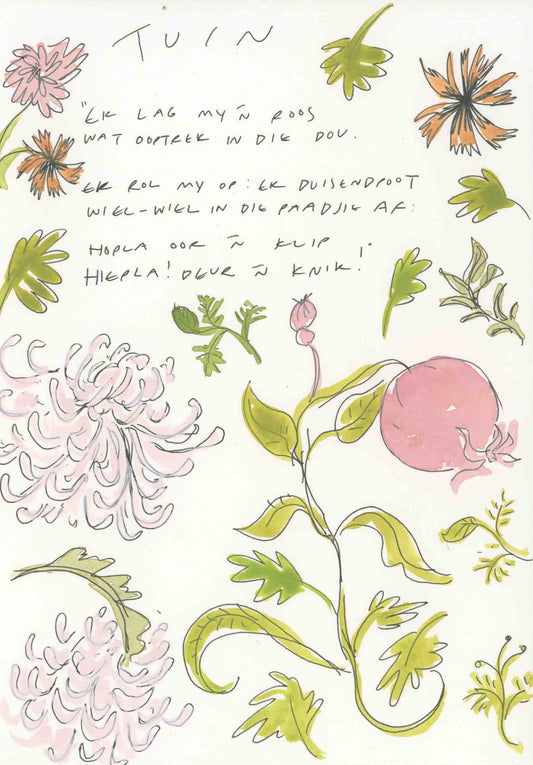 TUIN
"EK LAG MY 'N ROOS
WAT OOPTREK IN DIE DOU.
EK ROL MY OP: EK DUISENDPOOT
WIEL-WIEL IN DIE PAADJIE AF:
HOPLA OOR 'N KLIP
HIEPLA! DEUR 'N KNIK!"